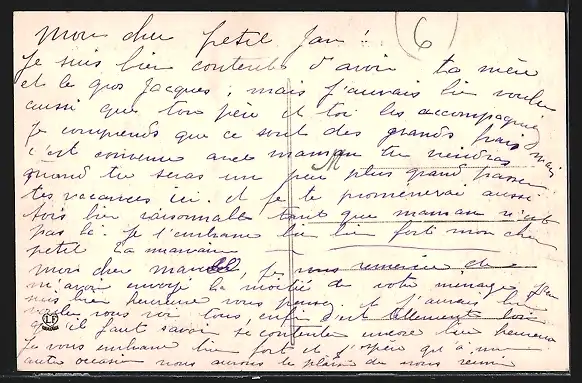 Mon cher petit Jan ! 6
Je suis bien contente d'avoir ta mère
et le gros Jacques, mais j'aurais bien voulu
aussi que ton père et toi les accompagnie
Je comprends que ce sont des grands frais, mais
c'est convenu avec maman tu viendras
quand tu seras un peu plus grand passer
tes vacances ici. et je te promènerai aussi
sois bien raisonnable tant que maman n'est
pas là. je t'embrasse bien bien fort mon cher
petit La marraine
Mon cher je vous remercie de
m'avoir envoyé la moitié de votre ménage, j'en
suis bien heureuse vous pensez. et j'aurais bien
voulu vous voir tous, enfin c'est tellement
qu'il faut savoir se contenter encore bien heureux
Je vous embrasse bien fort et j'espère qu'à une
autre occasion nous aurons le plaisir de nous réunir